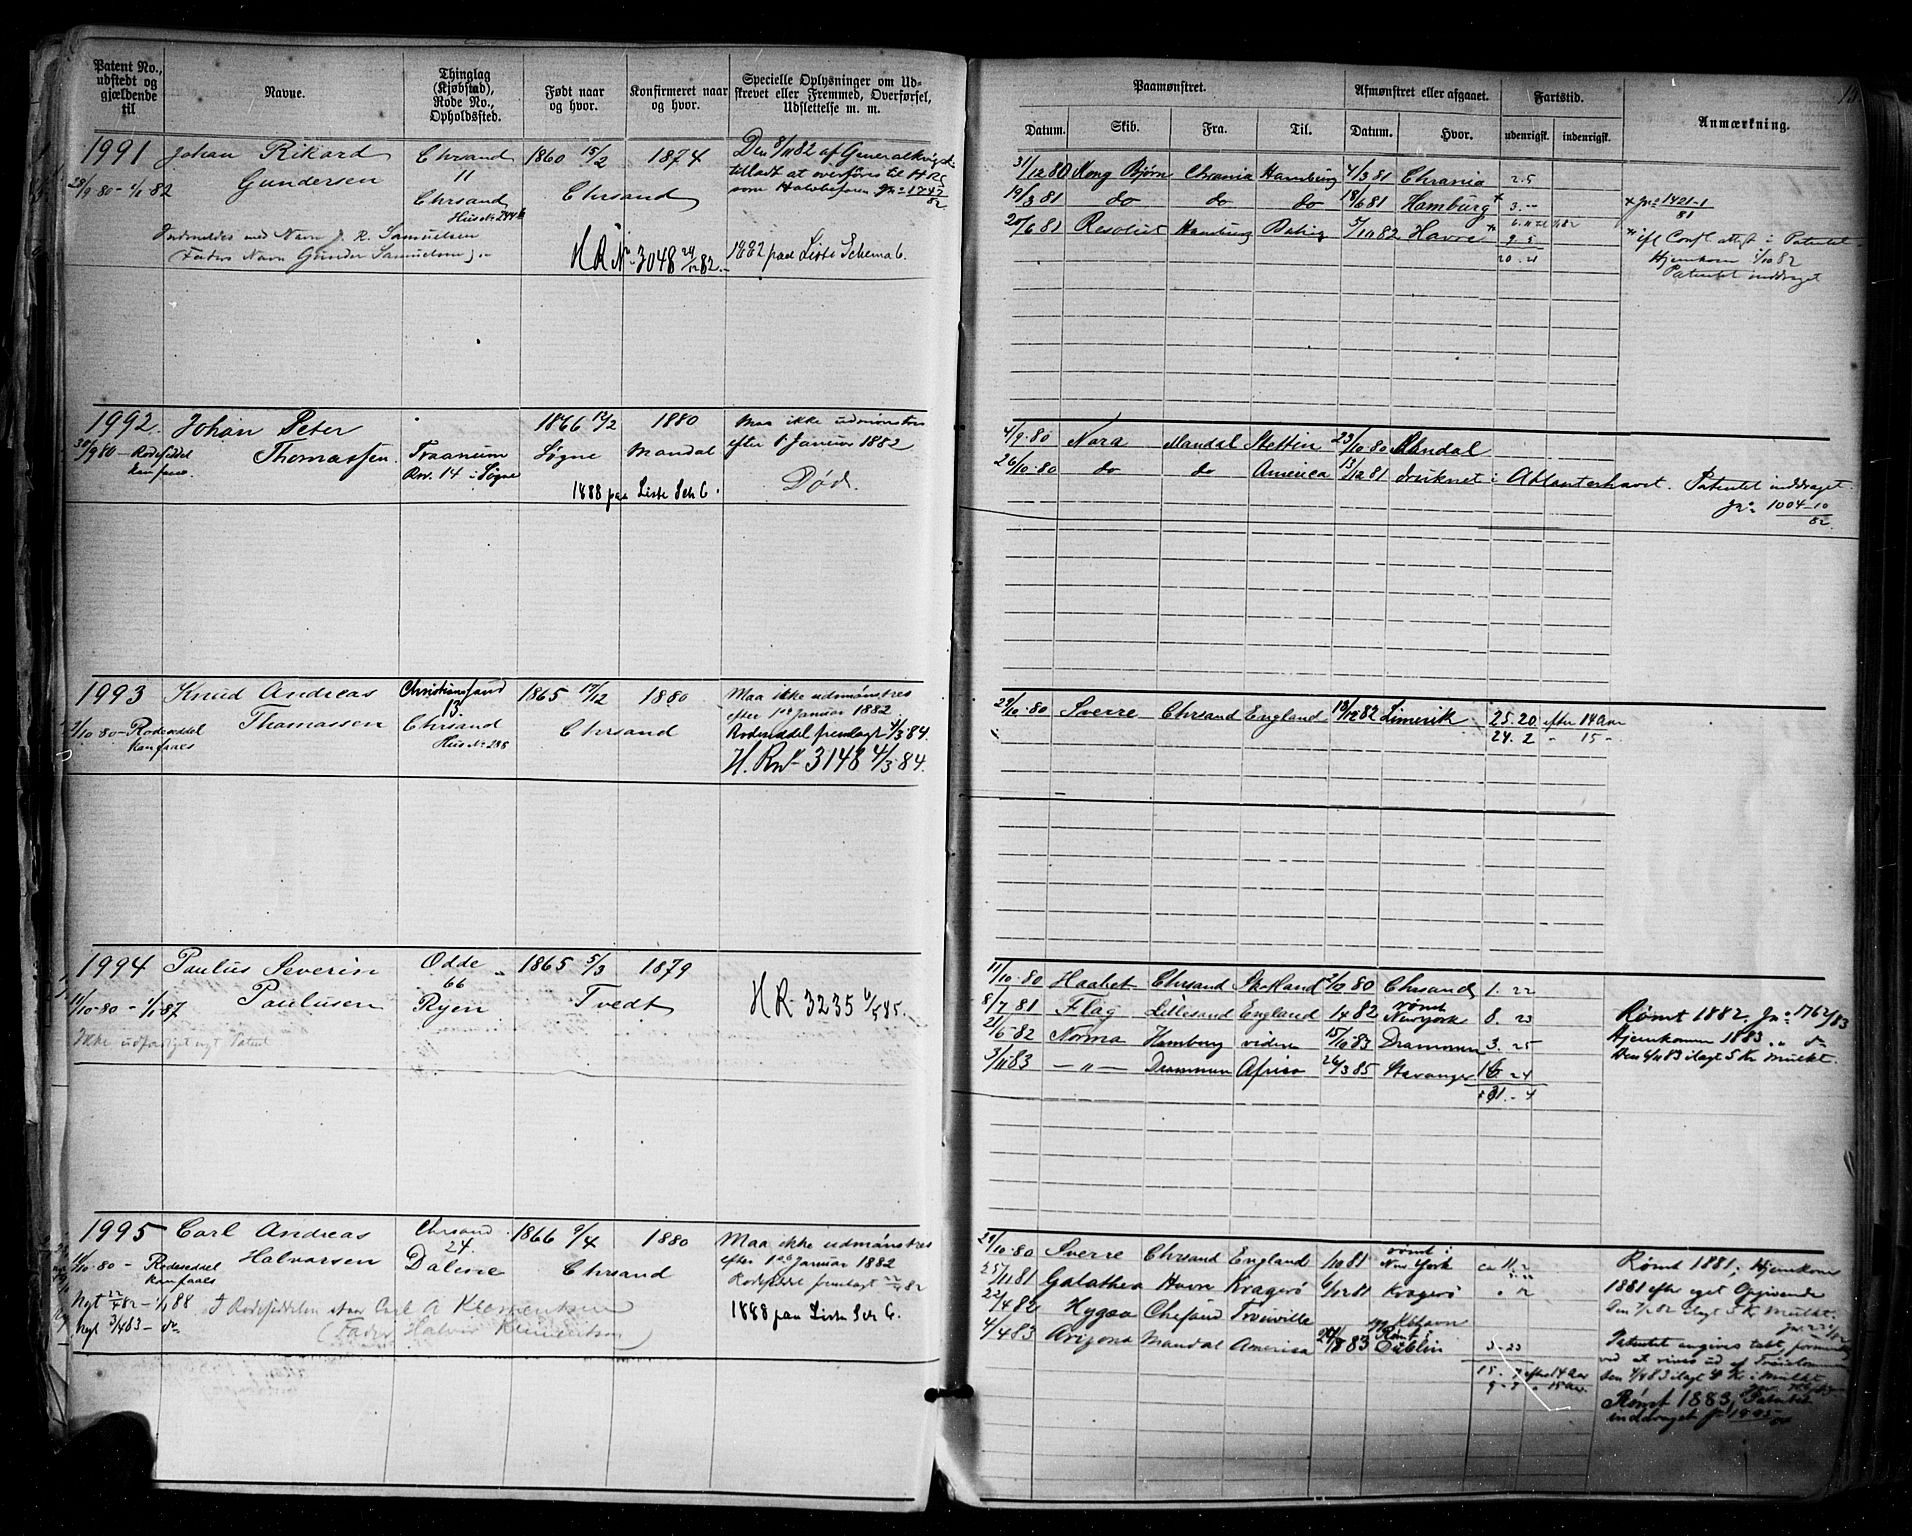 Patent No.,
udstedt og
gjældende
til
Navne.
Thinglag
(Kjøbstad),
Rode No.,
Opholdssted.
Født naar
og hvor.
Konfirmeret naar
og hvor.
Specielle Oplysninger om Ud-
skrevet eller Fremmed, Overførsel,
Udslettelse m. m.
Paamønstret.
Afmønstret eller afgaaet.
Fartstid.
Anmærkning.
Datum.
Skib.
Fra.
Til.
Datum.
Hvor.
udenrigsk.
indenrigsk.
1991 Johan Rikard Chrsand 1860 15/2 1874 Den 8/11 82 af Generalkrigsk.
Gundersen 11 tilladt at overføres til HR
28/9 80 - 1/1 82 Chrsand Chrsand som Halvbefaren Jr. 1747/82
Hus No 244 b
Indmeldes med Navn J. R. Samuelsen
Faders Navn Gunder Samuelsen
H R No 3048 29/12 82. 1882 paa Liste Schema 6.
31/12 80 Kong Bjørn Chrania Hamburg 4/3 81 Chrania 2.5
19/3 81 do do do 18/6 81 Hamburg 3.
20/6 81 Resolut Hamburg 3/10 82 Havre 9 5
20. 21
x Jr. 1421-1/81
Patentet
Hjemkom 1/10 82
Patentet inddraget
1992 Johan Peter 1866 12/2 1880 Maa ikke udmønstres
30/9 80 - Rodeseddel Thomassen Traanum Søgne Mandal efter 1 Januar 1882
kan faaes Rno. 14 i Søgne
1888 paa Liste Sch 6. Død.
4/9 80 Nora Mandal Stettin 23/10 80 Mandal
26/10 80 do do America 13/12 81 druknet i Atlanterhavet. Patentet inddraget.
Jr. 1004-10/82.
1993 Knud Andreas Christianssand 1865 17/12 1880 Maa ikke udmønstres
Thomassen 13 efter 1ste Januar 1882
1/10 80 - Rodeseddel Chrsand Chrsand Rodeseddel fremlagt 4/3 84.
kan faaes Hus No 295 H. R No 3148 4/3 84.
29/10 80 Sverre Chrsand England 19/12 82 Limerik 25. 20 efter 14 Aar
24. 2 " 15 "
1994 Paulus Severin Odde 1865 5/3 1879
Paulusen 66
11/10 80 - 1/1 87 Ryen Tvedt HR 3235 6/5 85.
Ikke udfærdiget nyt Patent
11/10 80 Haabet Chrsand Skotland 2/12 80 Chrsand 1. 22
8/7 81 Flag Lillesand England 1/4 82 rømt New York 8. 23
2/5 82 Norma Hamburg videre 15/10 83 Drammen 3. 25
3/11 83 — " — Drammen Africa 26/3 85 Stavanger 16 24
31 - 4
Rømt 1882. Jr. 1762/83
Hjemkommen 1883. " do
Den 4/11 83 ilagt 5 Kr Mulkt.
1995 Carl Andreas Chrsand 1866 9/4 1880 Maa ikke udmønstres
Halvorsen 24. efter 1ste Januar 1882
11/10 80 - Rodeseddel Dalene Chrsand Rodeseddel fremlagt 22/4 82
kan faaes
Nyt 22/4 82 - 1/1 88 I Rodesiddelen staar Carl A Klementsen 1888 paa Liste Sch 6.
Nyt 3/4 83 - do (Fader Halvor Klementsen)
29/10 80 Sverre Chrsand England 1/10 81 rømt i New York ca 11. 2
25/11 81 Galathea Havre Kragerø 6/12 81 Kragerø
22/4 82 Hygæa Chrsand Trouville
4/4 83 Arizona Mandal America 24/8 83 Rømt i Dublin 3-23
15. 7 efter 14 Aar
9 - 15 Aar.
Rømt 1881; Hjemkom
1881 efter eget Opgivende
ilagt 5 Kr Mulkt.
Patentet angives tabt,
den 4/4 83 ilagt 4 Kr i Mulkt
Rømt 1883, Patentet
inddraget